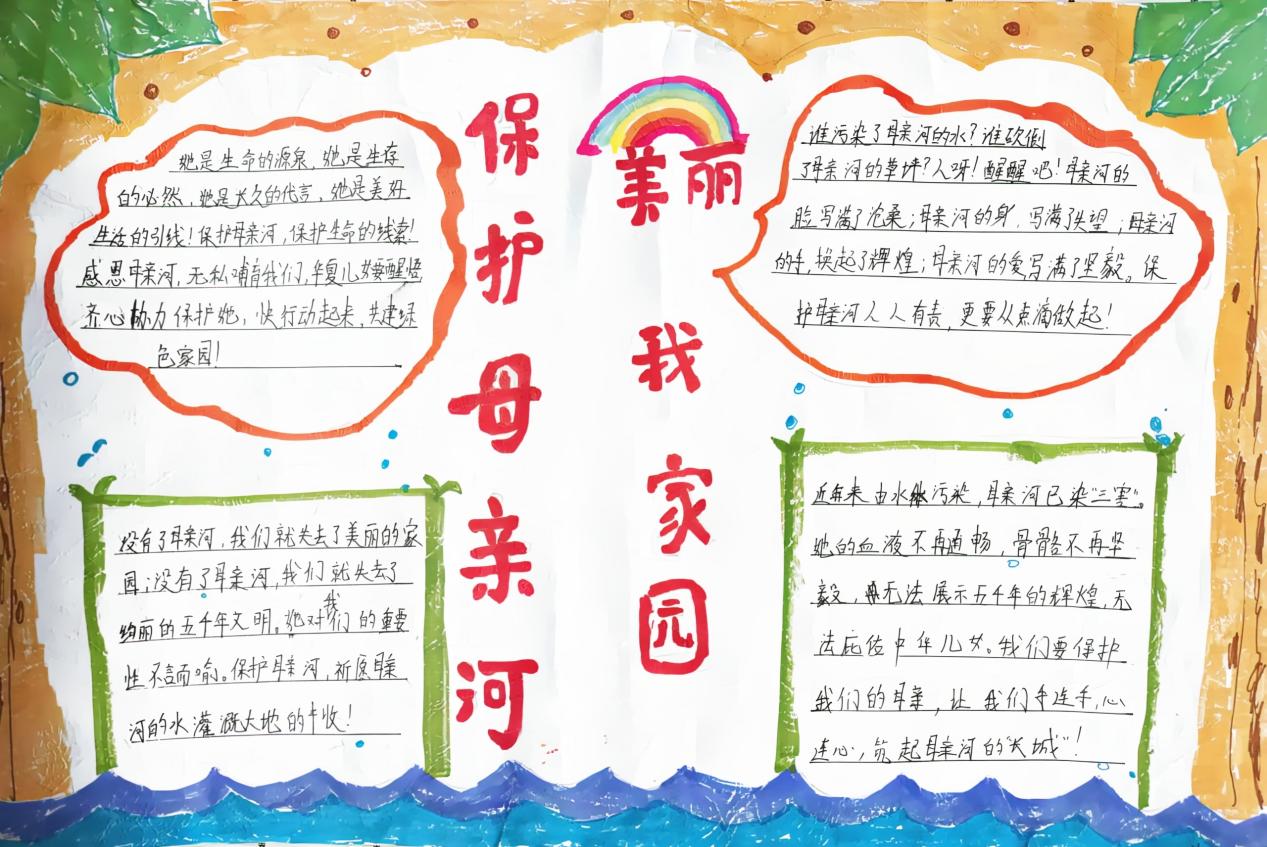 保护母亲河
美丽
我家园
她是生命的源泉，她是生存
的必然，她是长久的代言，她是美好
生活的引线！保护母亲河，保护生命的线索！
感恩母亲河，无私哺育我们，华夏儿女要醒悟
齐心协力保护她，快行动起来，共建绿
色家园！
谁污染了母亲河的水？谁砍倒
了母亲河的草坪？人呀！醒醒吧！母亲河的
脸写满了沧桑；母亲河的身，写满了失望；母亲河
的手，换起了辉煌；母亲河的爱写满了坚毅。保
护母亲河人人有责，更要从点滴做起！
没有了母亲河，我们就失去了美丽的家
园；没有了母亲河，我们就失去了
绚丽的五千年文明。她对我们的重要
性不言而喻。保护母亲河，祈愿母亲
河的水灌溉大地的丰收！
近年来由水体污染，母亲河已染“三害”。
她的血液不再通畅，骨骼不再坚
毅，无法展示五千年的辉煌，无
法庇佑中华儿女。我们要保护
我们的母亲，让我们手连手，心
连心，筑起母亲河的“长城”！